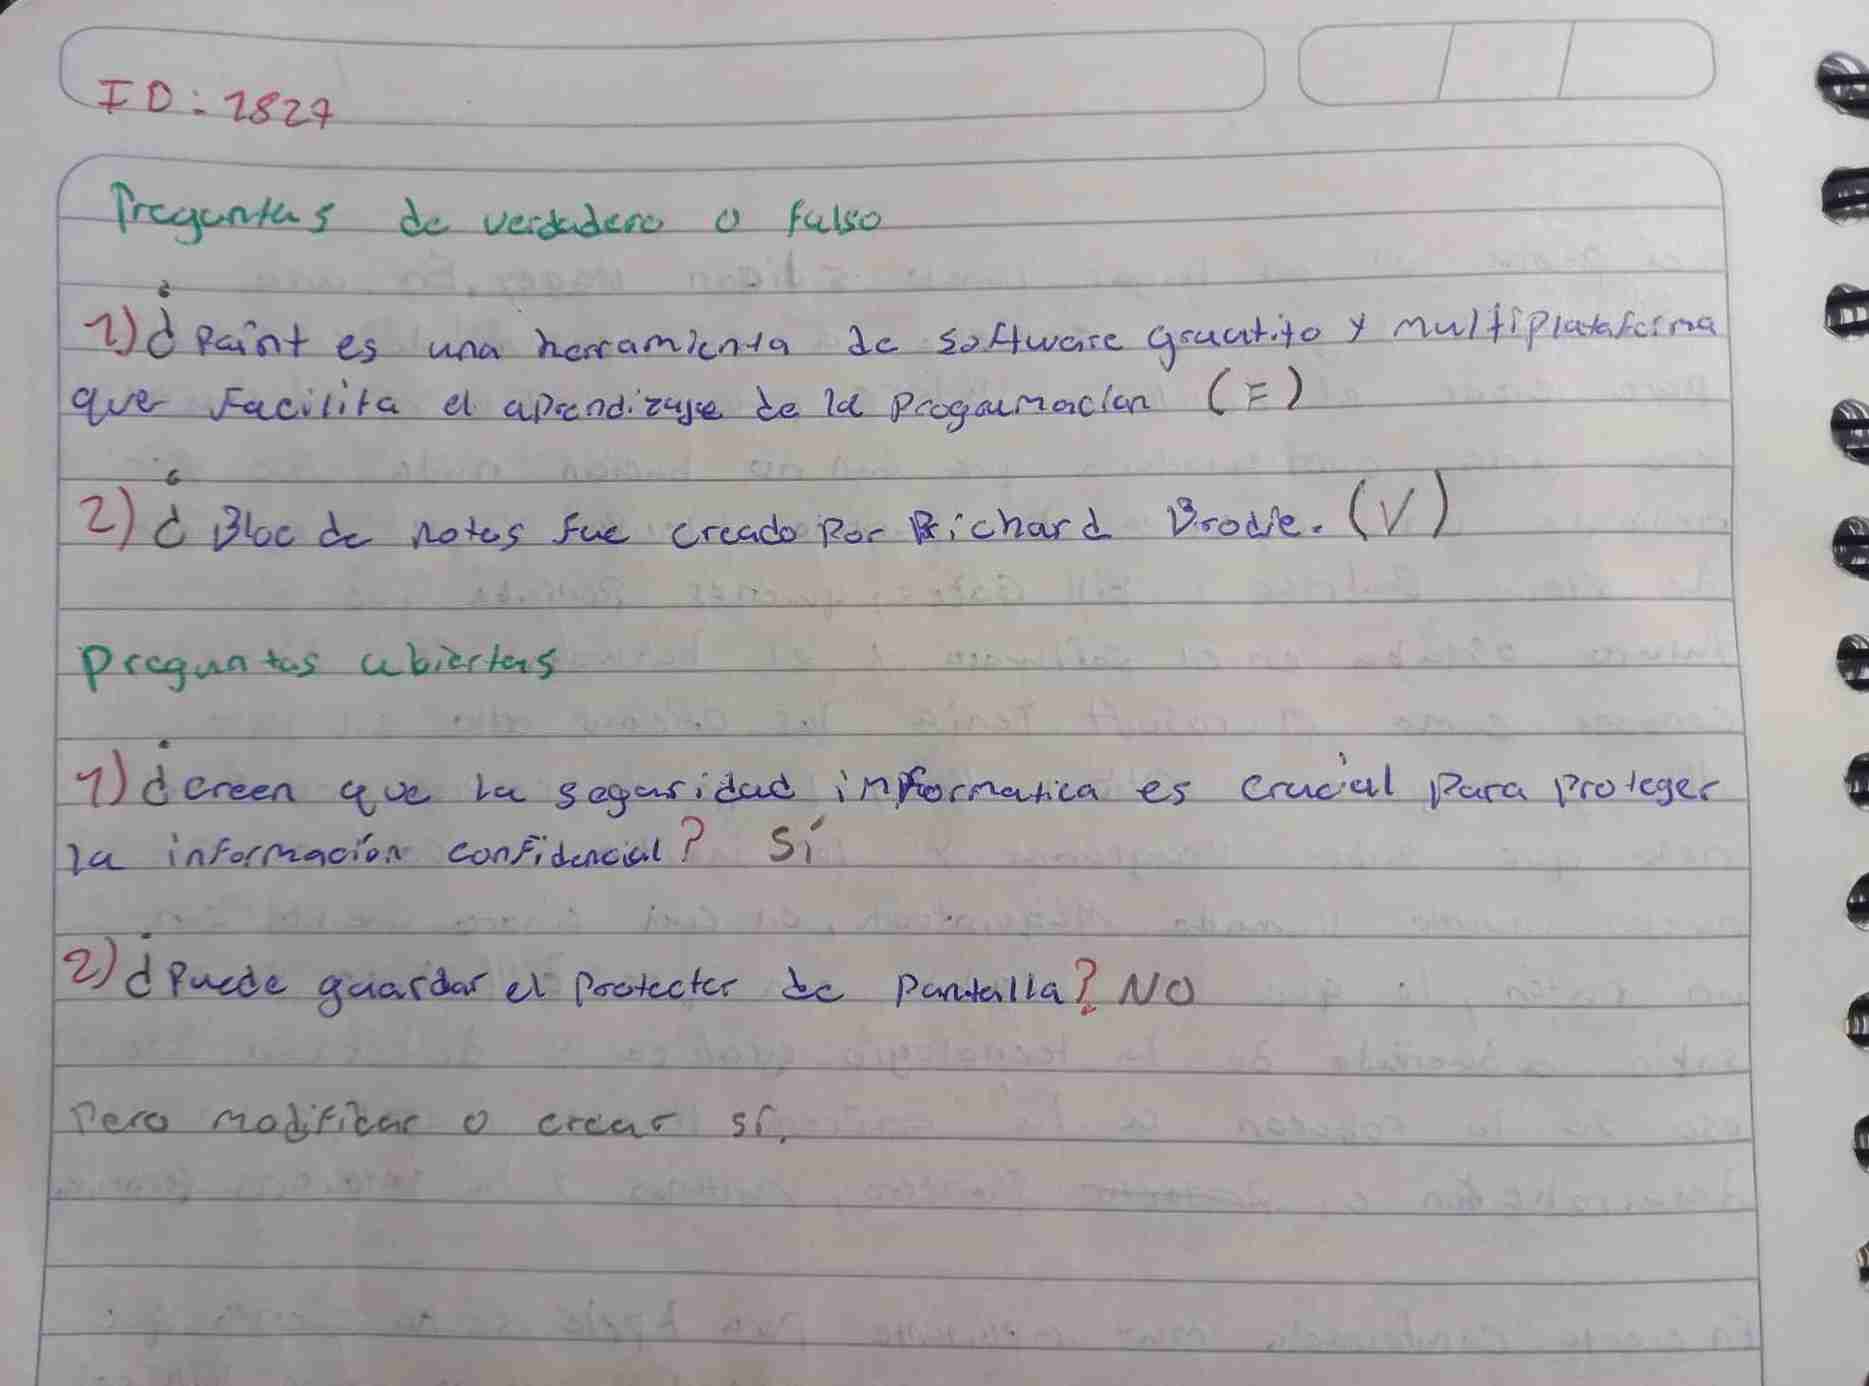 ID: 1827
Preguntas de verdadero o falso
1) ¿Paint es una herramienta de software gruatito y multiplataforma
que Facilita el aprendizaje de la Programacion (F)
2) ¿Bloc de notas fue creado Por Richard Brodie. (V)
preguntas abiertas
1) ¿creen que la seguridad informatica es crucial para proteger
la información confidencial? Sí
2) ¿Puede guardar el Protector de Pantalla? NO
Pero modificar o crear sí.